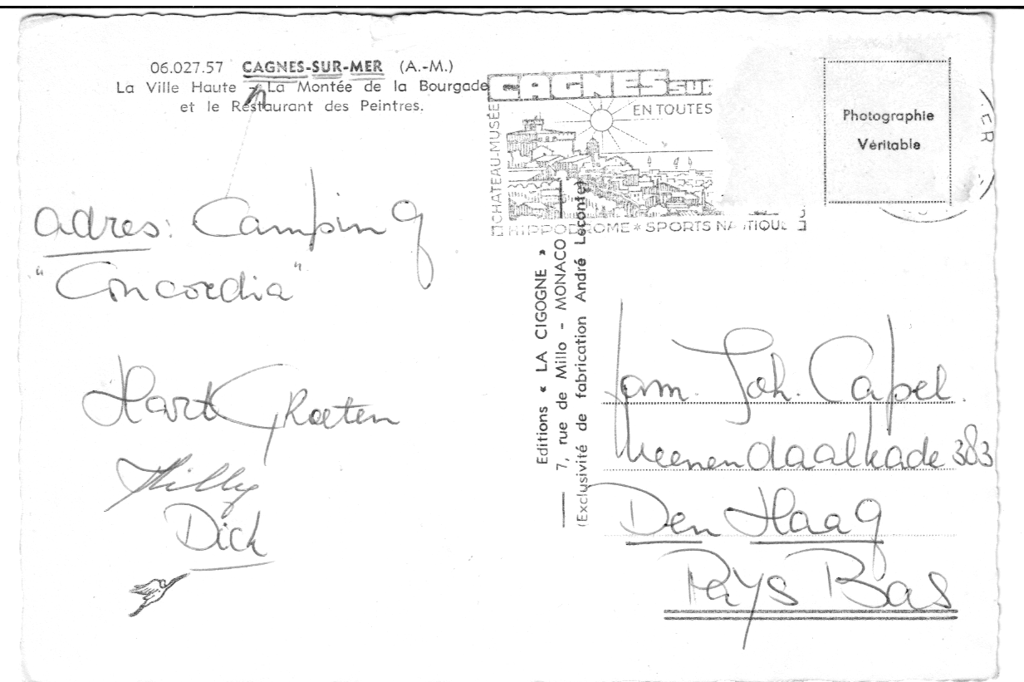 06.027.57 CAGNES-SUR-MER (A.-M.)
La Ville Haute - La Montée de la Bourgade
et le Restaurant des Peintres.
CAGNES SUR
EN TOUTES
CHATEAU-MUSÉE
HIPPODROME * SPORTS NAUTIQUE
Photographie
Véritable
adres: Camping
"Concordia"
Hart Groeten
Willy
Dick
Editions « LA CIGOGNE »
7, rue de Millo - MONACO
(Exclusivité de fabrication André Leconte)
Fam. Joh. Capel.
383
Den Haag
Pays Bas